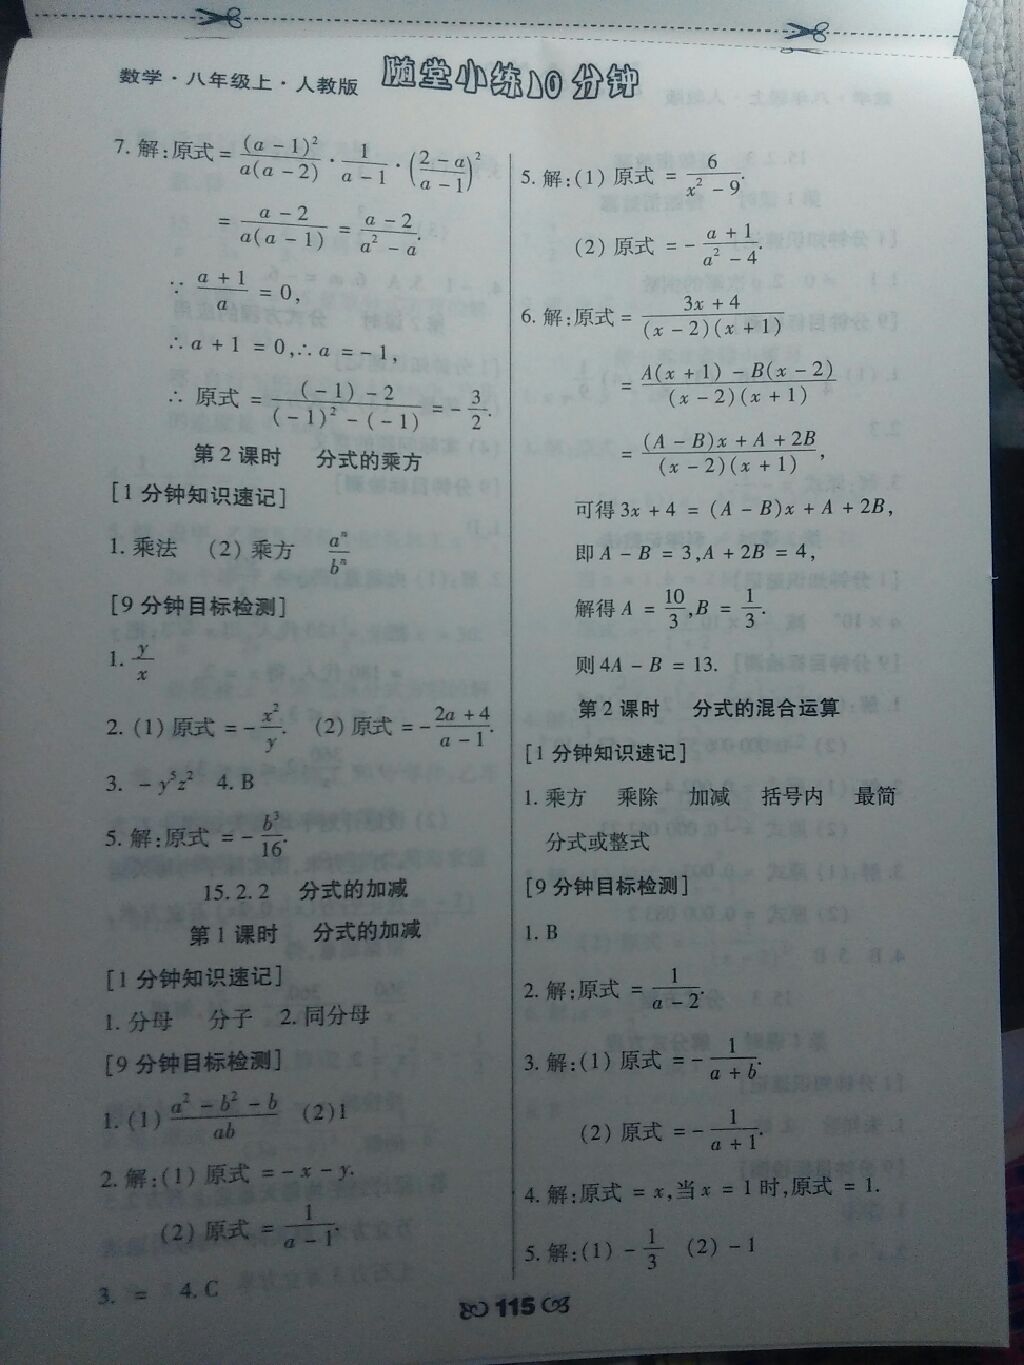 数学·八年级上·人教版 随堂小练10分钟
7. 解:原式=\frac{(a-1)^2}{a(a-2)}·\frac{1}{a-1}·(\frac{2-a}{a-1})^2
=\frac{a-2}{a(a-1)}=\frac{a-2}{a^2-a}.
∵\frac{a+1}{a}=0,
∴a+1=0,∴a=-1,
∴原式=\frac{(-1)-2}{(-1)^2-(-1)}=-\frac{3}{2}.
第2课时 分式的乘方
[1分钟知识速记]
1. 乘法 (2)乘方 \frac{a^n}{b^n}
[9分钟目标检测]
1. \frac{y}{x}
2. (1)原式=-\frac{x^2}{y}. (2)原式=-\frac{2a+4}{a-1}.
3. -y^5z^2 4. B
5. 解:原式=-\frac{b^3}{16}.
15.2.2 分式的加减
第1课时 分式的加减
[1分钟知识速记]
1. 分母 分子 2. 同分母
[9分钟目标检测]
1. (1)\frac{a^2-b^2-b}{ab} (2)1
2. 解:(1)原式=-x-y.
(2)原式=\frac{1}{a-1}.
3. = 4. C
5. 解:(1)原式=\frac{6}{x^2-9}.
(2)原式=-\frac{a+1}{a^2-4}.
6. 解:原式=\frac{3x+4}{(x-2)(x+1)}
=\frac{A(x+1)-B(x-2)}{(x-2)(x+1)}
=\frac{(A-B)x+A+2B}{(x-2)(x+1)},
可得3x+4=(A-B)x+A+2B,
即A-B=3,A+2B=4,
解得A=\frac{10}{3},B=\frac{1}{3}.
则4A-B=13.
第2课时 分式的混合运算
[1分钟知识速记]
1. 乘方 乘除 加减 括号内 最简
分式或整式
[9分钟目标检测]
1. B
2. 解:原式=\frac{1}{a-2}.
3. 解:(1)原式=-\frac{1}{a+b}.
(2)原式=-\frac{1}{a+1}.
4. 解:原式=x,当x=1时,原式=1.
5. 解:(1)-\frac{1}{3} (2)-1
115